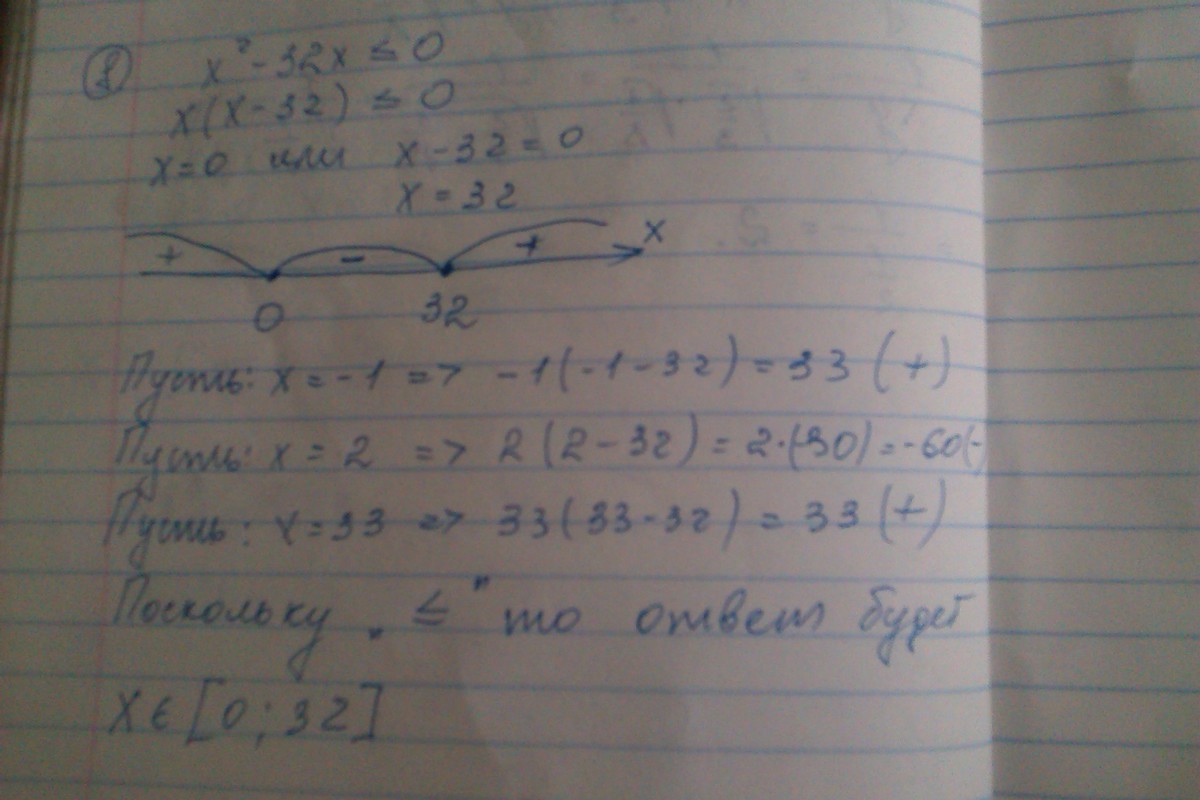 ① x² - 32x ≤ 0
x(x-32) ≤ 0
x=0 или x-32=0
x=32
+ - + x
0 32
Пусть: x=-1 => -1(-1-32)=33 (+)
Пусть: x=2 => 2(2-32)=2·(30)=-60(-)
Пусть: x=33 => 33(33-32)=33(+)
Поскольку „≤" то ответ будет
X∈[0;32]